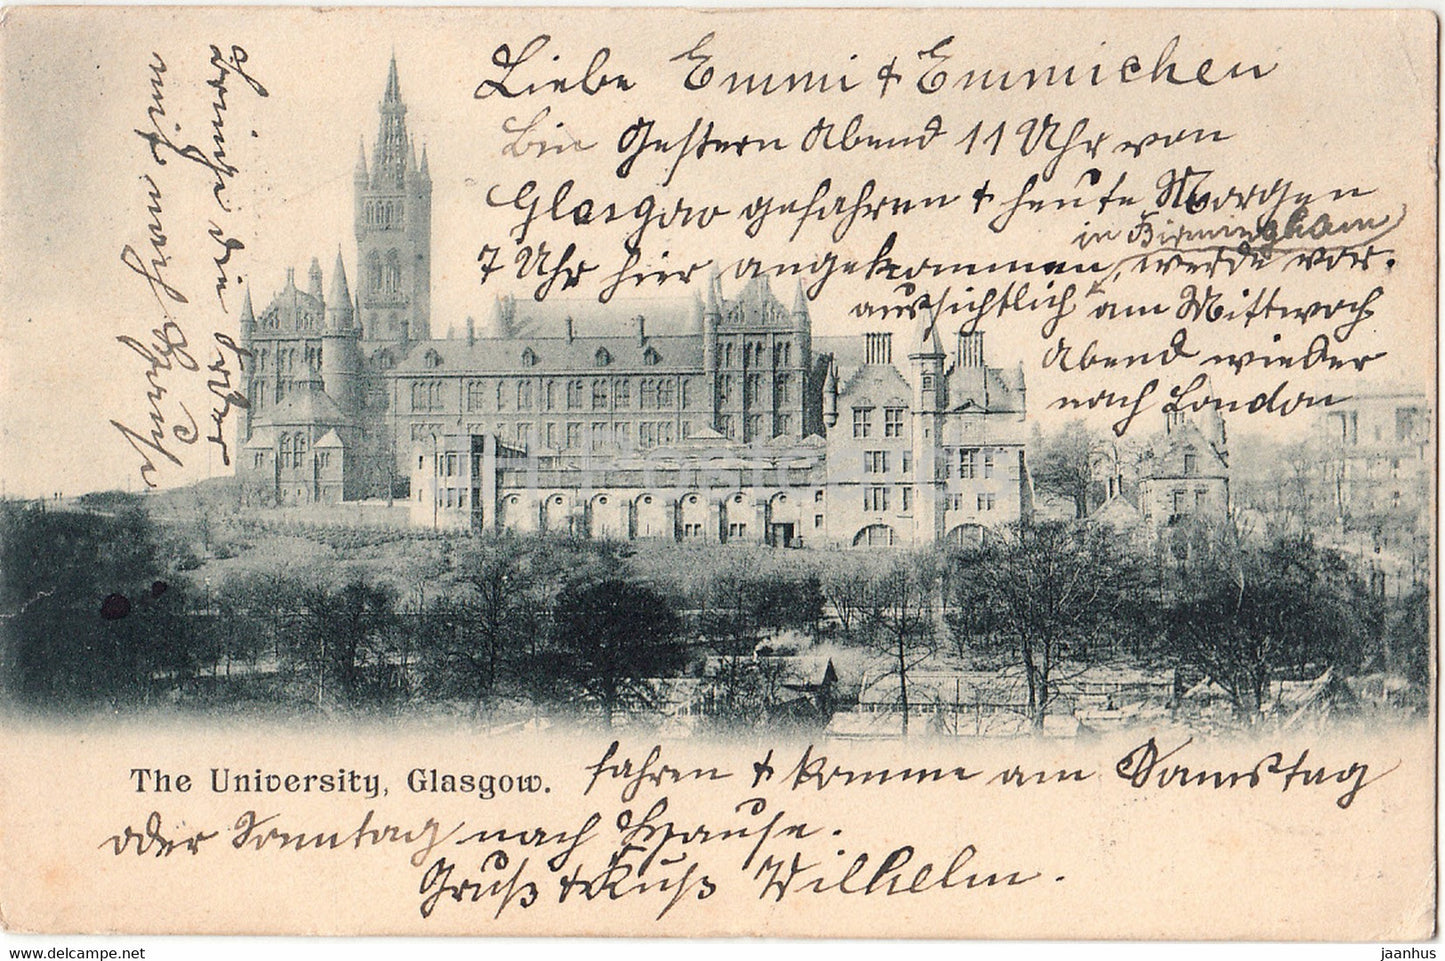 Liebe Emmi & Emmichen
Bin Gestern Abend 11 Uhr von
Glasgow gefahren & heute Morgen
7 Uhr hier angekommen, werde vor-
in Birmingham
aussichtlich am Mittwoch
Abend wieder
nach London
The University, Glasgow.
fahren & komme am Samstag
oder Sonntag nach Hause.
Gruß & Kuß Wilhelm.
bringe die
mit nach Hause
JH Postcards
jaanhus